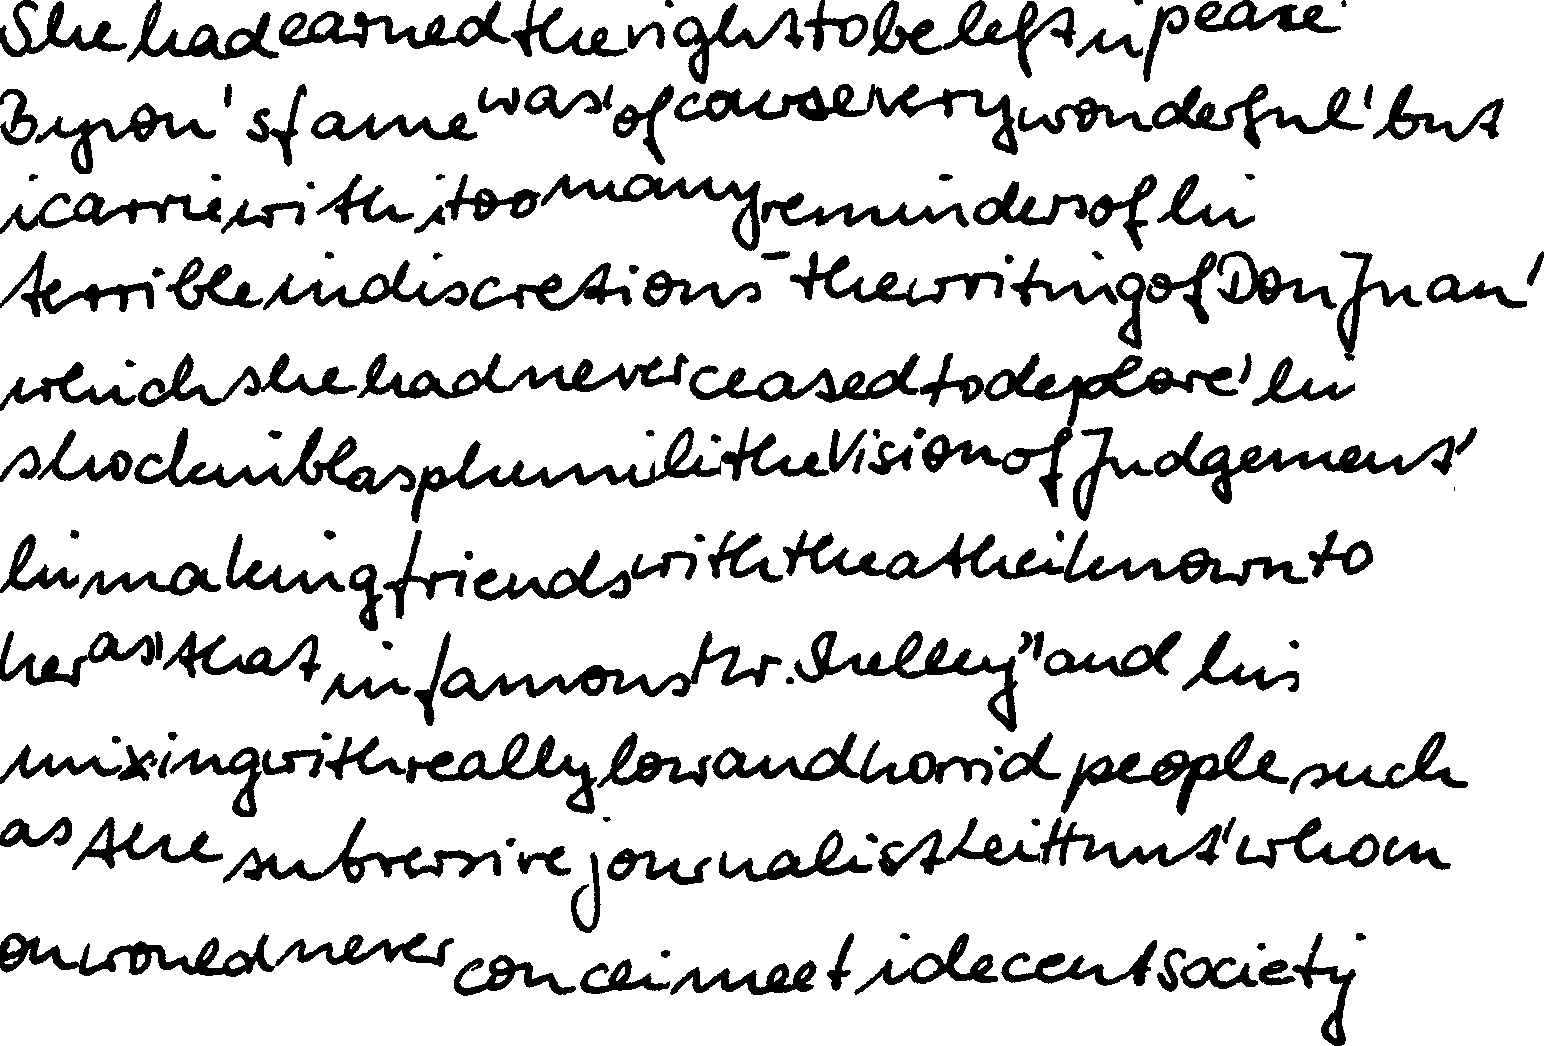 She had earned the right to be left in peace.
Byron's fame was, of course very wonderful, but
it carrie with it too many reminders of hi
terrible indiscretions - the writing of Don Juan,
which she had never ceased to deplore, hi
shockin blasphemi li the Vision of Judgement,
hi making friends with the athei known to
her as "that infamous Mr. Shelley" and his
mixing with really low and horrid people such
as the subversive journalist Leit Hunt, whom
on would never concei meet i decent society